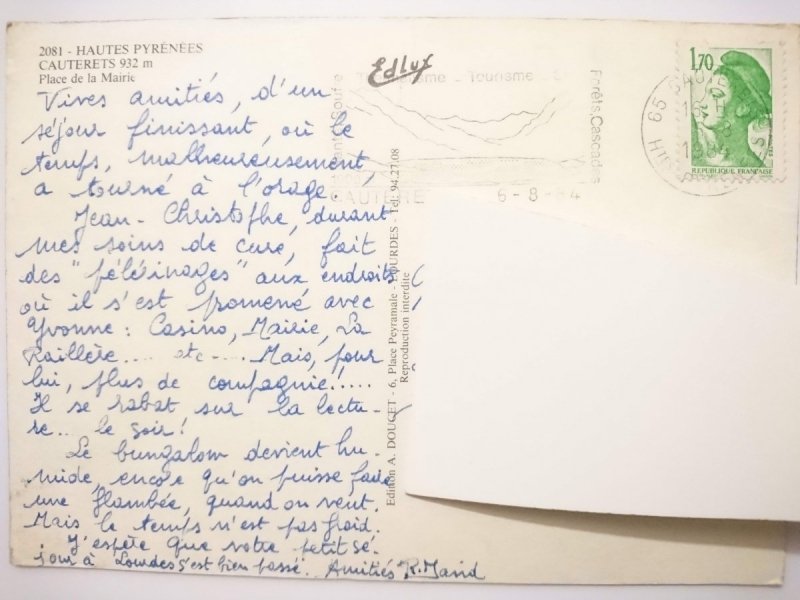 2081 - HAUTES PYRÉNÉES
CAUTERETS 932 m
Place de la Mairie
Edlux
Vives amitiés, d'un
séjour finissant, où le
temps, malheureusement,
a tourné à l'orage,
Jean-Christophe, durant
mes soins de cure, fait
des "pélérinages" aux endroits
où il s'est promené avec
Yvonne: Casino, Mairie, La
Raillère.... etc.... Mais, pour
lui, plus de compagnie!!....
Il se rabat sur la lectu-
re... le soir!
Le bungalow devient hu-
mide, encore qu'on puisse faire
une flambée, quand on veut.
Mais le temps n'est pas froid.
J'espère que votre petit sé-
jour à Lourdes s'est bien passé. Amitiés R.
Edition A. DOUCET - 6, Place Peyramale - LOURDES - Tél: 94.27.08
Reproduction interdite
Tourisme
Forêts, Cascades
6-8-84
1,70
REPUBLIQUE FRANÇAISE
65